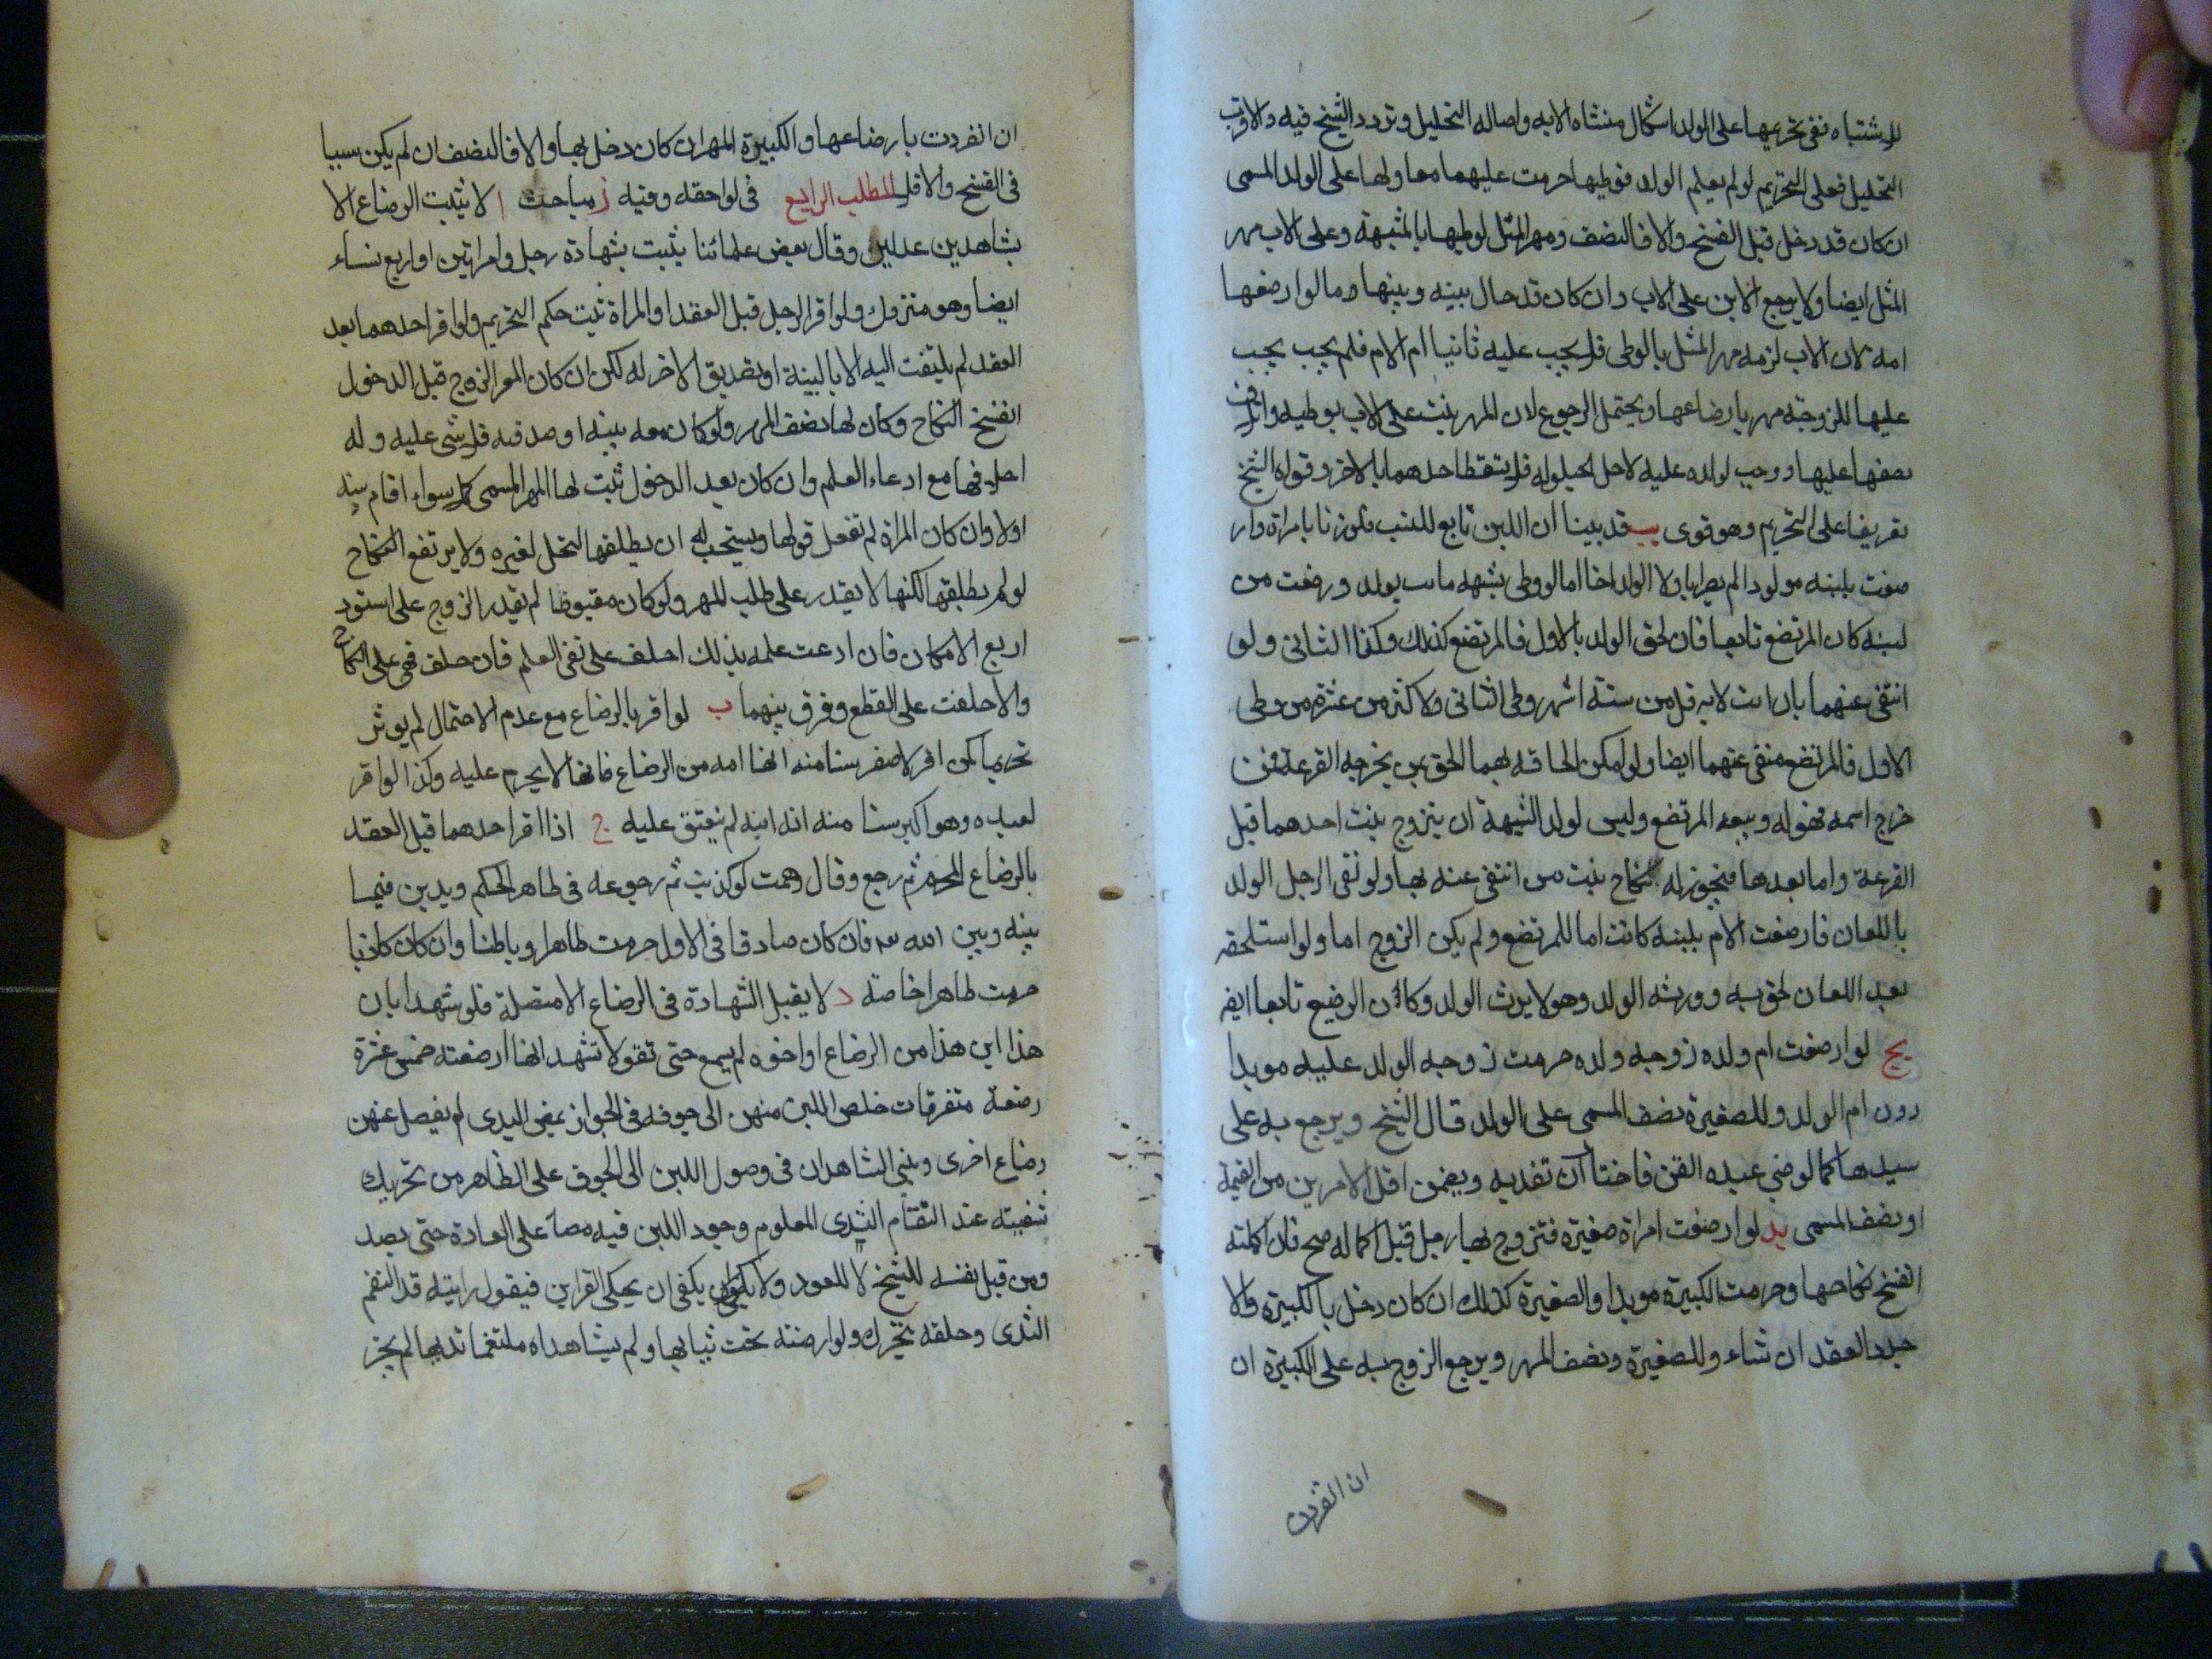 للاشتباه نفى تحريمها على الولد اشكال منشاه الابه واصاله التحليل وتردد الشيخ فيه والاقرب
التحليل فعلى التحريم لو لم يعلم الولد فوطيها حرمت عليهما معا ولها على الولد المسمى
ان كان قد دخل قبل الفسخ والا فالنصف ومهر المثل لوطيها بالشبهة وعلى الاب مهر
المثل ايضا ولا يرجع الابن على الاب وان كان قد حال بينه وبينها اما لو ارضعها
امه لان الاب لزمه مهر المثل بالوطى فلا يجب عليه ثانيا ام الام فلم يجب يجب
عليها للزوجته مهر بارضاعها ويحتمل الرجوع لان المهر يثبت على الاب بوطيه
نصفها عليها ووجب لولده عليه لاجل الحيلوله فلا يسقط احدهما بالاخر وقول الشيخ
تفريعا على التحريم وهو قوى يب قد بينا ان اللبن تابع للنسب فلو زنا بامراة وار
ضعت بلبنه مولودا لم يصر ابا ولا الولد اخا اما لو وطى بشبهه مات بولد ورضعت من
لبنه كان المرتضع تابعا فان لحق الولد بالاول فالمرتضع كذلك وكذا الثانى ولو
انتفى عنهما بان اتت لا به قل من ستة اشهر وطى الثانى ولاكثر من عشرة من وطى
الاول فالمرتضع منفى عنهما ايضا ولو امكن الحاقه بهما الحق بمن يخرجه القرعة فمن
خرج اسمه فهو له ويتبعه المرتضع وليس لولد الشبهة ان يتزوج بنت احدهما قبل
القرعة واما بعدها فيجوز له نكاح بنت من انتفى عنه بها ولو نفى الرجل الولد
باللعان فارضعت الام بلبنه كانت اما للمرتضع ولم يكن الزوج ابا ولو استلحقه
بعد اللعان لحق به وورثه الولد وهو لا يرث الولد وكان الرضيع تابعا ايضا
يج لو ارضعت ام ولده زوجه ولده حرمت زوجه الولد عليه موبدا
دون ام الولد وللصغيرة نصف المسمى على الولد قال الشيخ ويرجع به على
سيدها كما لو جنى عبده القن فاختار ان تفديه ويضمن اقل الامرين من القيمة
او نصف المسمى يد لو ارضعت امراة صغيرة فتزوج بها رجل قبل اكماله صح فان اكملته
انفسخ نكاحها وحرمت الكبيرة موبدا والصغيرة كذلك ان كان دخل بالكبيرة والا
جدد العقد ان شاء وللصغيرة ونصف المهر ويرجع الزوج به على الكبيرة ان
ان انفردت
ان انفردت بارضاعها والكبيرة المهر ان كان دخل بها والا فالنصف ان لم يكن سببا
فى الفسخ والا فلا المطلب الرابع فى لواحقه وفيه ز مباحث ا لا يثبت الرضاع الا
بشاهدين عدلين وقال بعض علمائنا يثبت بشهادة رجل وامراتين او اربع نساء
ايضا وهو متروك ولو اقر الرجل قبل العقد او المراة ثبت حكم التحريم ولو اقر احدهما بعد
العقد لم يلتفت اليه الا بالبينة او تصديق الاخر له لكن ان كان المقر الزوج قبل الدخول
انفسخ النكاح وكان لها نصف المهر ولو كان معه بينه او صدقته فلا شى عليه وله
احلافها مع ادعاء العلم وان كان بعد الدخول ثبت لها المهر المسمى كملا سواء اقام بينه
اولا وان كان المراة لم تفعل قولها ويستحب له ان يطلقها لتحل لغيره ولا يرتفع النكاح
لو لم يطلقها لكنها لا يقدر على طلب المهر ولو كان مقبوضا لم يقدر الزوج على استرد
اربع الامكان فان ادعت علمه بذلك احلف على نفى العلم فان حلف فهى على النكاح
والا حلفت على القطع وفرق بينهما ب لو اقر بالرضاع مع عدم الاحتمال لم يوثر
تحريما كمن اقر لاصغر سنا منه انها امه من الرضاع فانها لا يحرم عليه وكذا لو اقر
لعبده وهو اكبر سنا منه انه ابنه لم ينعتق عليه ج اذا اقر احدهما قبل العقد
بالرضاع المحرم ثم رجع وقال وهمت او كذبت ثم رجوعه فى ظاهر الحكم ويدين فيما
بينه وبين الله تع فان كان صادقا فى الاول حرمت ظاهرا وباطنا وان كان كاذبا
حرمت ظاهرا خاصة د لا يقبل الشهادة فى الرضاع الا مفصلة فلو شهدا بان
هذا ابن هذا من الرضاع او اخوه لم يسمع حتى تقولا نشهد انها ارضعته خمس عشرة
رضعة متفرقات خلص اللبن منهن الى جوفه فى الحولين من الثدى لم يفصل عنهن
رضاع اخرى ويبنى الشاهدان فى وصول اللبن الى الجوف على الظاهر من تحريك
شفتيه عند التقام الثدى المعلوم وجود اللبن فيه مصا على العادة حتى يصد
ومن قبل نفسه للشيخ لا للعود ولا يكفى ان يحكى القراين فيقول رايته قد التقم
الثدى وحلقه يتحرك ولو ارضعته تحت ثيابها ولم يشاهداه ملتقما ثديها لم يجز